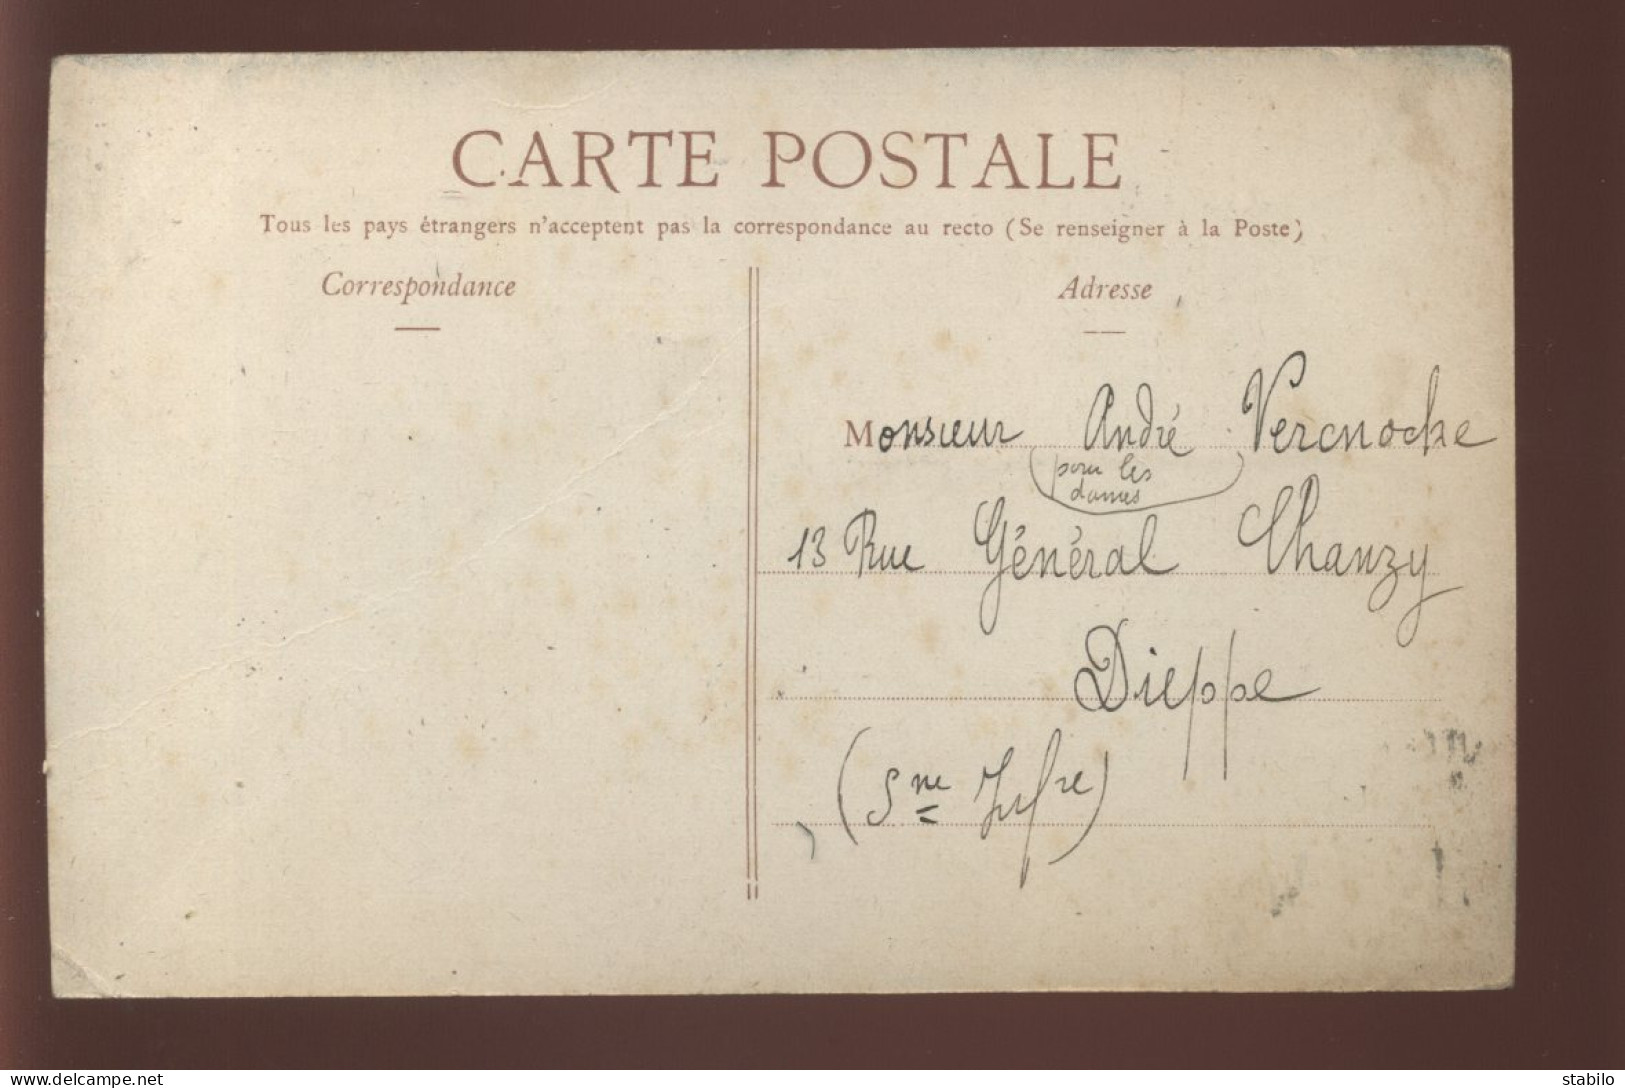 CARTE POSTALE
Tous les pays étrangers n'acceptent pas la correspondance au recto (Se renseigner à la Poste)
Correspondance
Adresse
Monsieur André Vercnocke
(pour les
dames)
13 Rue Général Chanzy
Dieppe
(Sne Infre)
delcampe.net
stabilo